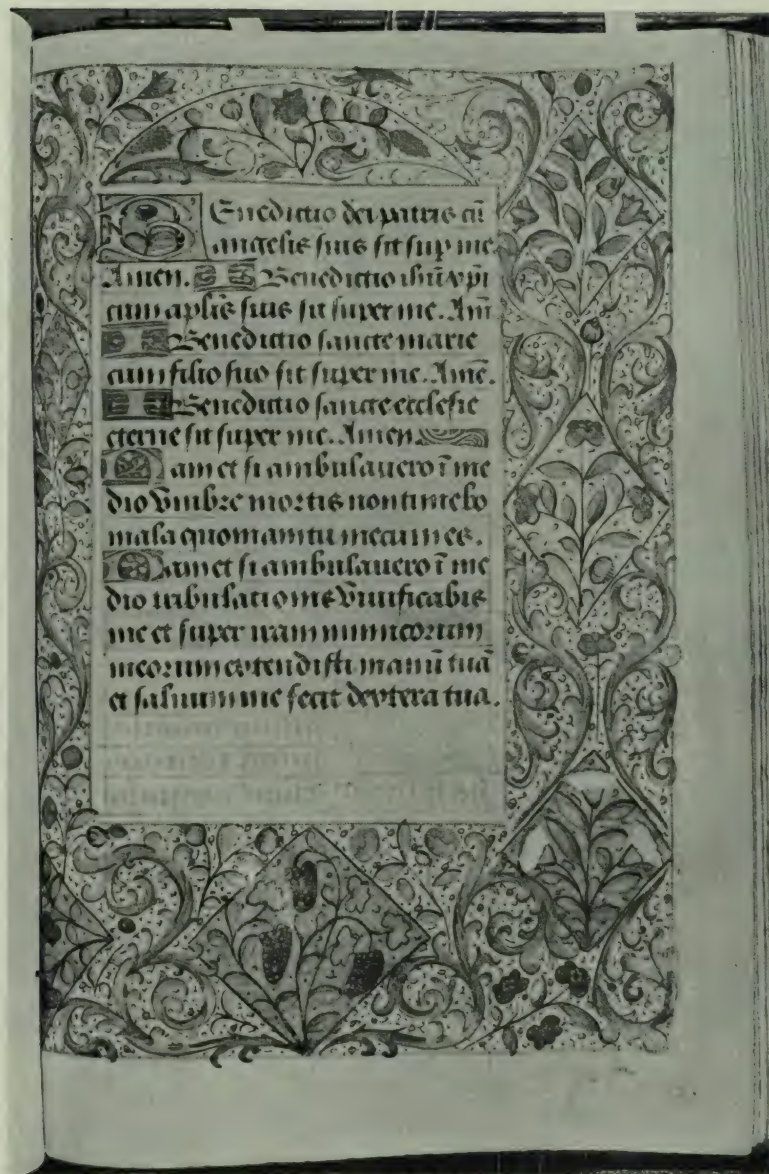 Benedictio dei patris cū
angelis suis sit sup me
Amen. Benedictio ihū xp̄i
cum aplīs suis sit super me. Am̄
Benedictio sancte marie
cum filio suo sit super me. Amē.
Benedictio sancte ecclesie
eterne sit super me. Amen
Nam et si ambulauero ī me
dio vmbre mortis non timebo
mala quoniam tu mecum es.
Nam et si ambulauero ī me
dio tribulationis viuificabis
me et super iram inimicorum
meorum extendisti manū tuā
et saluum me fecit dextera tua.